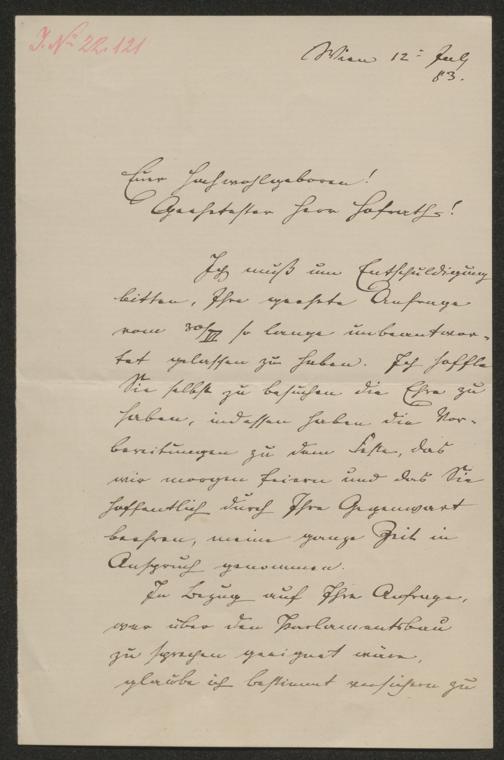 J. No 22.121
Wien 12 = July
83.
Euer Hochwohlgeboren!
Geehrtester Herr Hofrath!
Ich muß um Entschuldigung
bitten, Ihre geehrte Anfrage
vom 30/VI so lange unbeantwor-
tet gelassen zu haben. Ich hoffte
Sie selbst zu besuchen die Ehre zu
haben, indessen haben die Vor-
bereitungen zu dem Feste, das
wir morgen feiern und das Sie
hoffentlich durch Ihre Gegenwart
beehren, meine ganze Zeit in
Anspruch genommen.
In Bezug auf Ihre Anfrage,
wer über den Parlamentsbau
zu sprechen geeignet wäre,
glaube ich bestimmt versichern zu